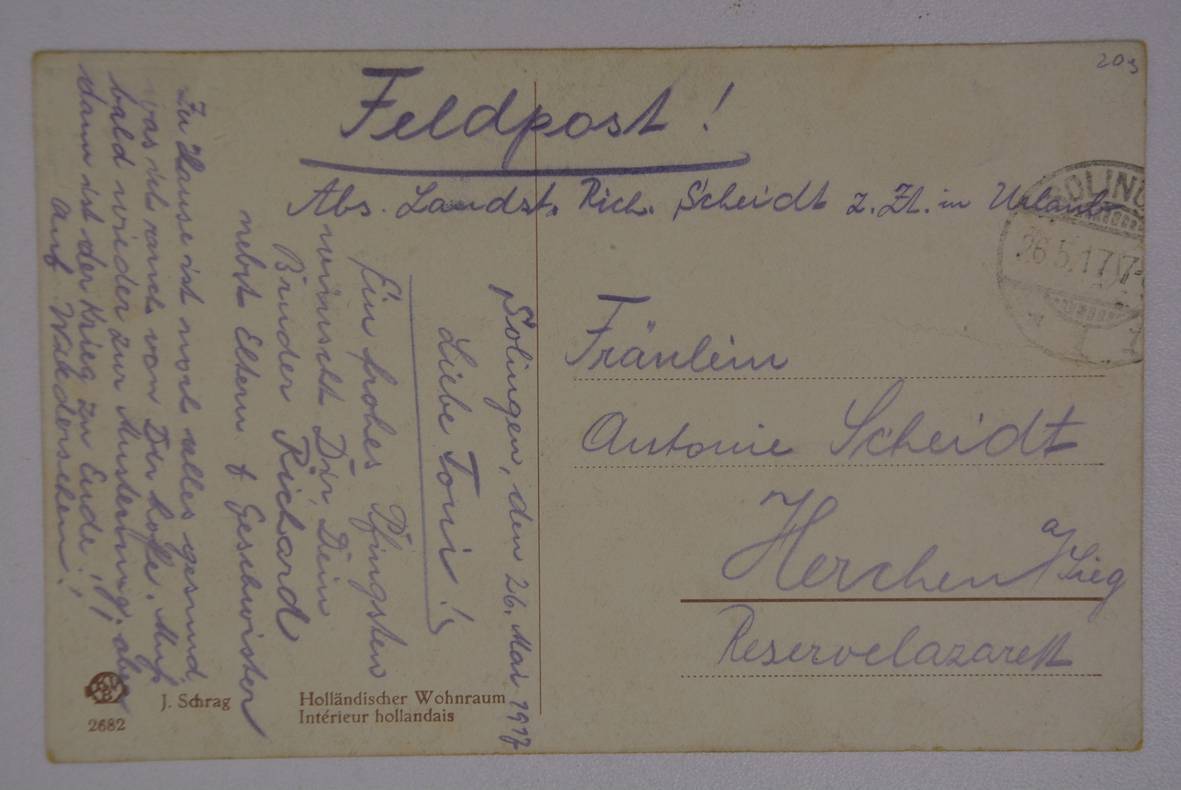 203
Feldpost!
Abs. Landst. Rich. Scheidt z. Zt. in Urlaub
SOLING
26.5.17 7-
Fräulein
Antonie Scheidt
Herchen a/Sieg
Reservelazarett
Solingen, den 26. Mai 1917
Liebe Toni!
Ein frohes Pfingsten
wünscht Dir, Dein
Bruder Richard
nebst Eltern & Geschwister
Zu Hause ist noch alles gesund,
was ich auch von Dir hoffe. Muß
bald wieder zur Musterung, aber
dann ist der Krieg zu Ende!,,
Auf Wiedersehen!
2682
J. Schrag
Holländischer Wohnraum
Intérieur hollandais